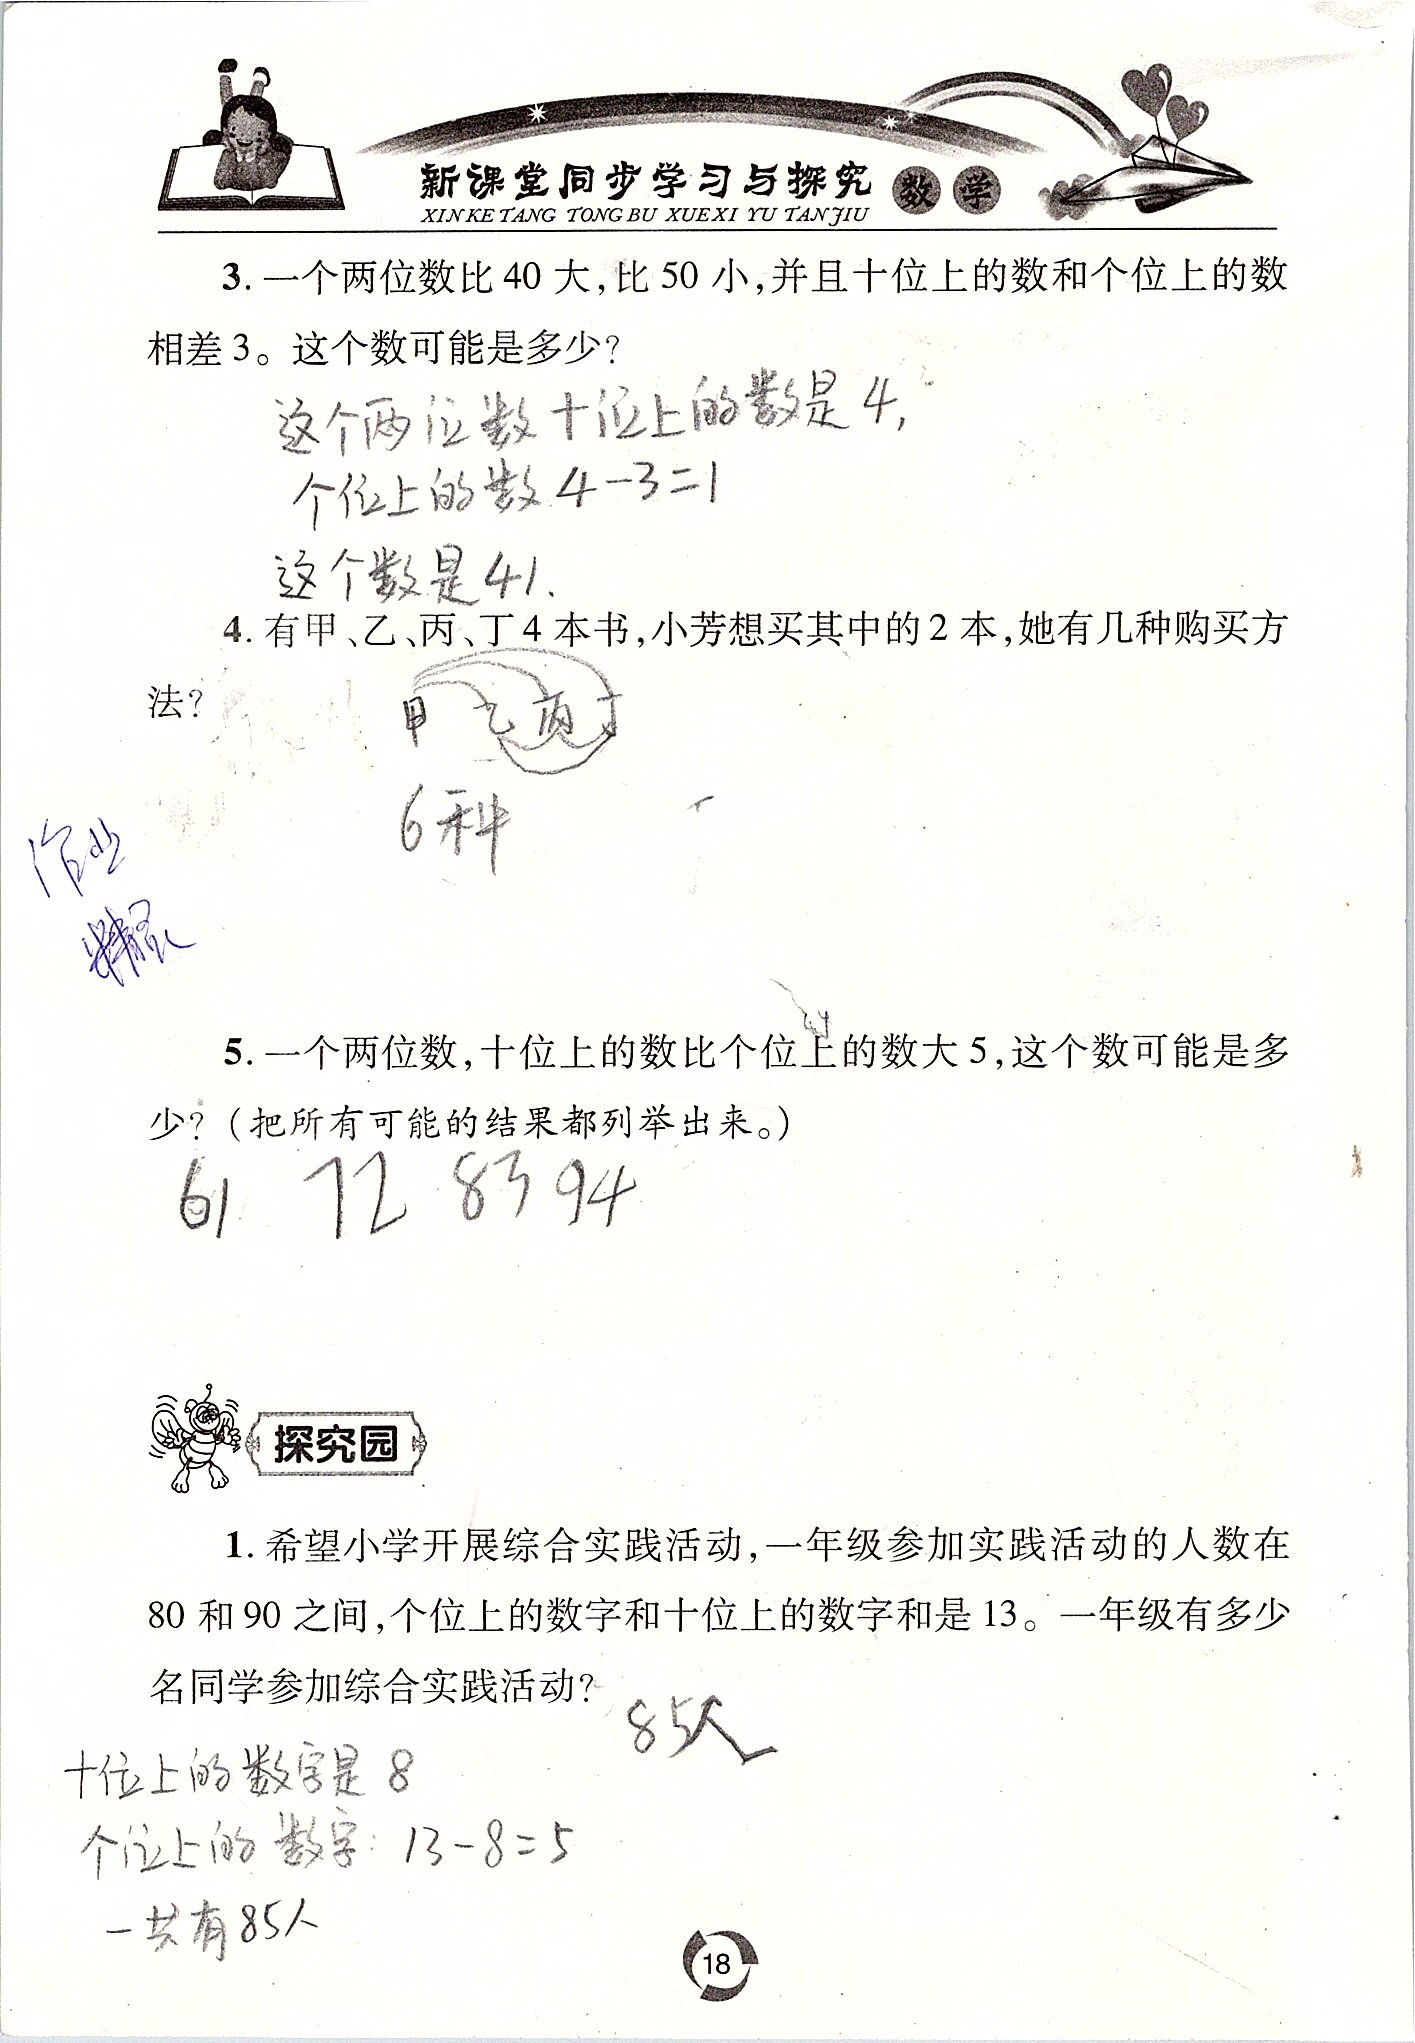 新课堂同步学习与探究 数学
XIN KE TANG TONG BU XUE XI YU TAN JIU
3. 一个两位数比 40 大,比 50 小,并且十位上的数和个位上的数
相差 3。这个数可能是多少?
这个两位数十位上的数是 4,
个位上的数 4-3=1
这个数是 41.
4. 有甲、乙、丙、丁 4 本书,小芳想买其中的 2 本,她有几种购买方
法?
甲 乙 丙 丁
6种
作业
5. 一个两位数,十位上的数比个位上的数大 5,这个数可能是多
少?(把所有可能的结果都列举出来。)
61 72 83 94
探究园
1. 希望小学开展综合实践活动,一年级参加实践活动的人数在
80 和 90 之间,个位上的数字和十位上的数字和是 13。一年级有多少
名同学参加综合实践活动?
85人
十位上的数字是 8
个位上的数字: 13-8=5
一共有85人
18